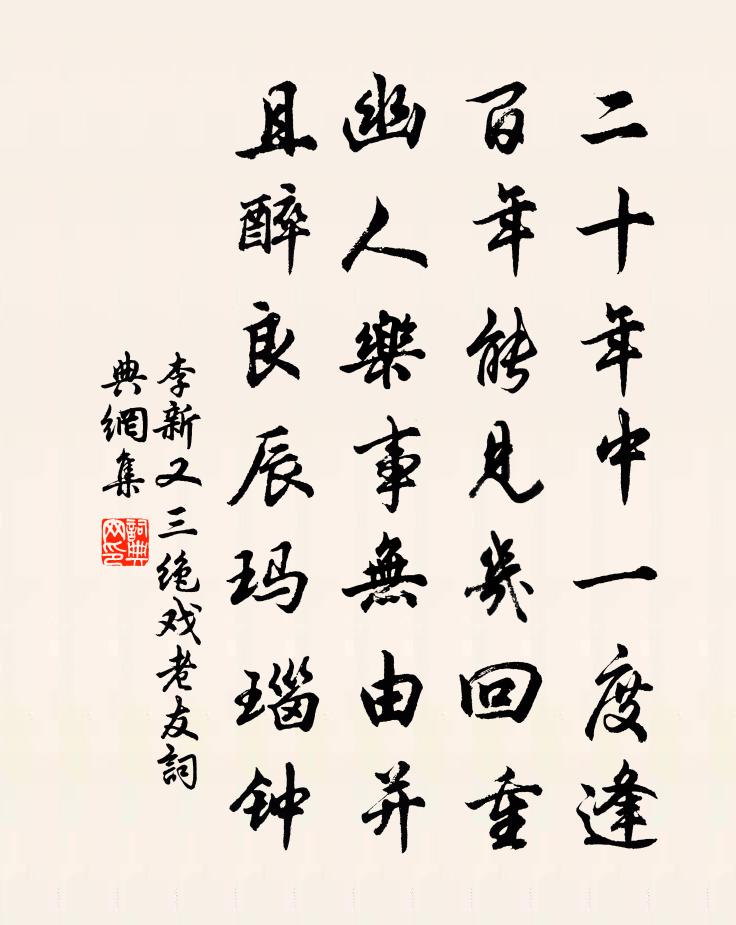 二十年中一度逢
百年能见幾回重
幽人樂事無由并
且醉良辰玛瑙钟
李新又三绝戏老友詞
典網集
詞典網印